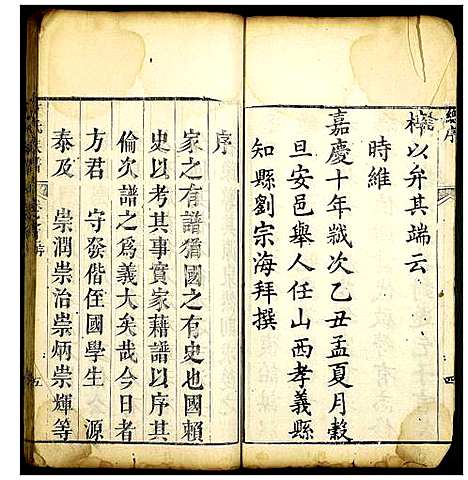 總序
梓以弁其端云
時維
嘉慶十年歲次乙丑孟夏月穀
旦安邑舉人任山西孝義縣
知縣劉宗海拜撰
四
序
家之有譜猶國之有史也國賴
史以考其事實家藉譜以序其
倫次譜之為義大矣哉今日者
方君 守發偕侄國學生 源
泰及 崇潤崇治崇炳崇輝等
五